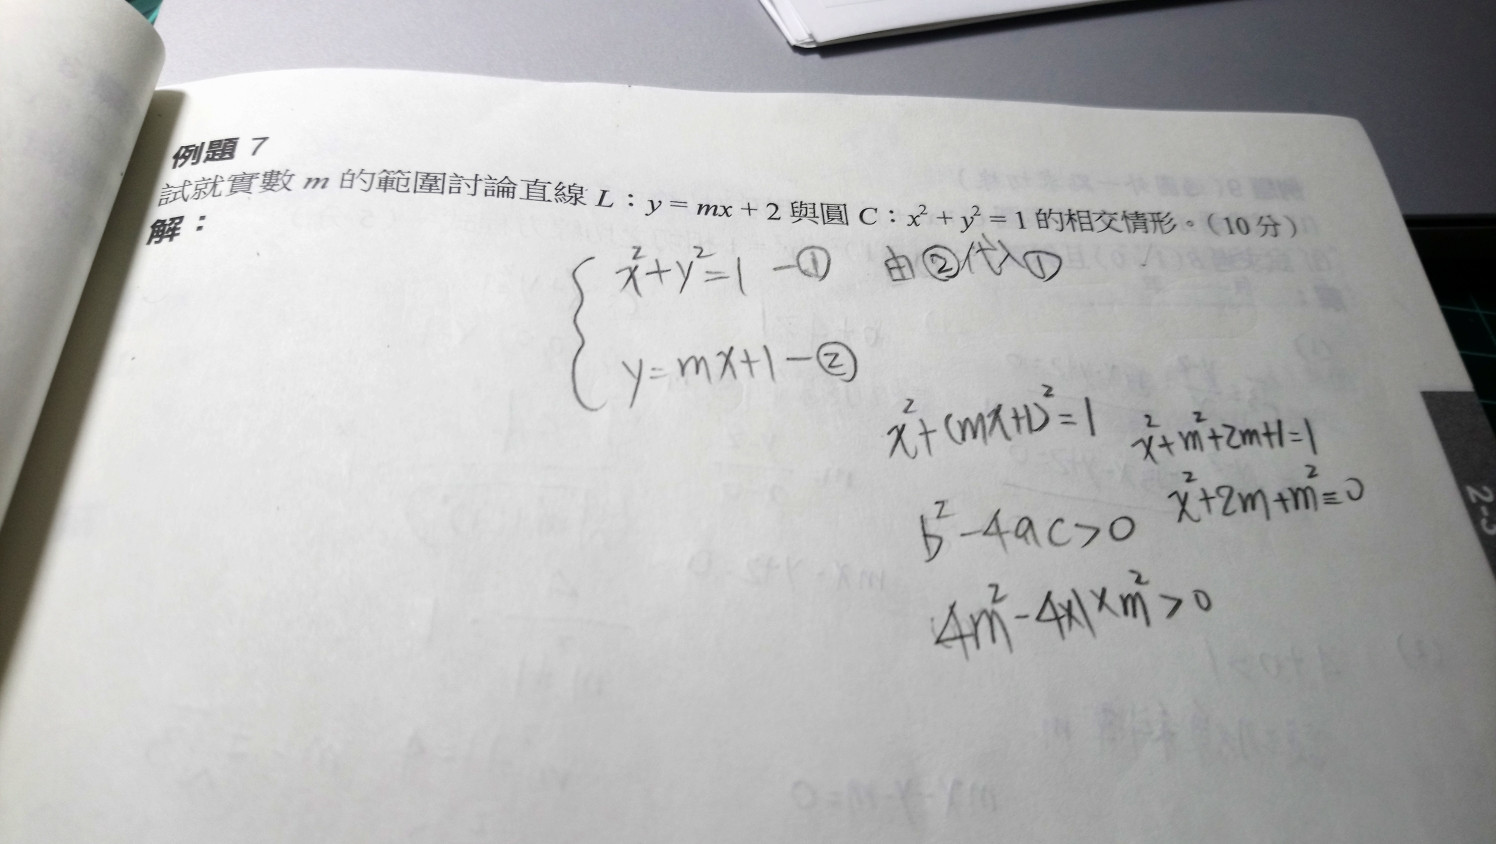 例題 7
試就實數 m 的範圍討論直線 L：y = mx + 2 與圓 C：x² + y² = 1 的相交情形。（10 分）
解：
x²+y²=1 －① 由②代入①
y=mx+1－②
x²+(mx+1)²=1 x²+m²+2m+1=1
x²+2m+m²=0
b²-4ac>0
4m²-4x1xm²>0
2-3